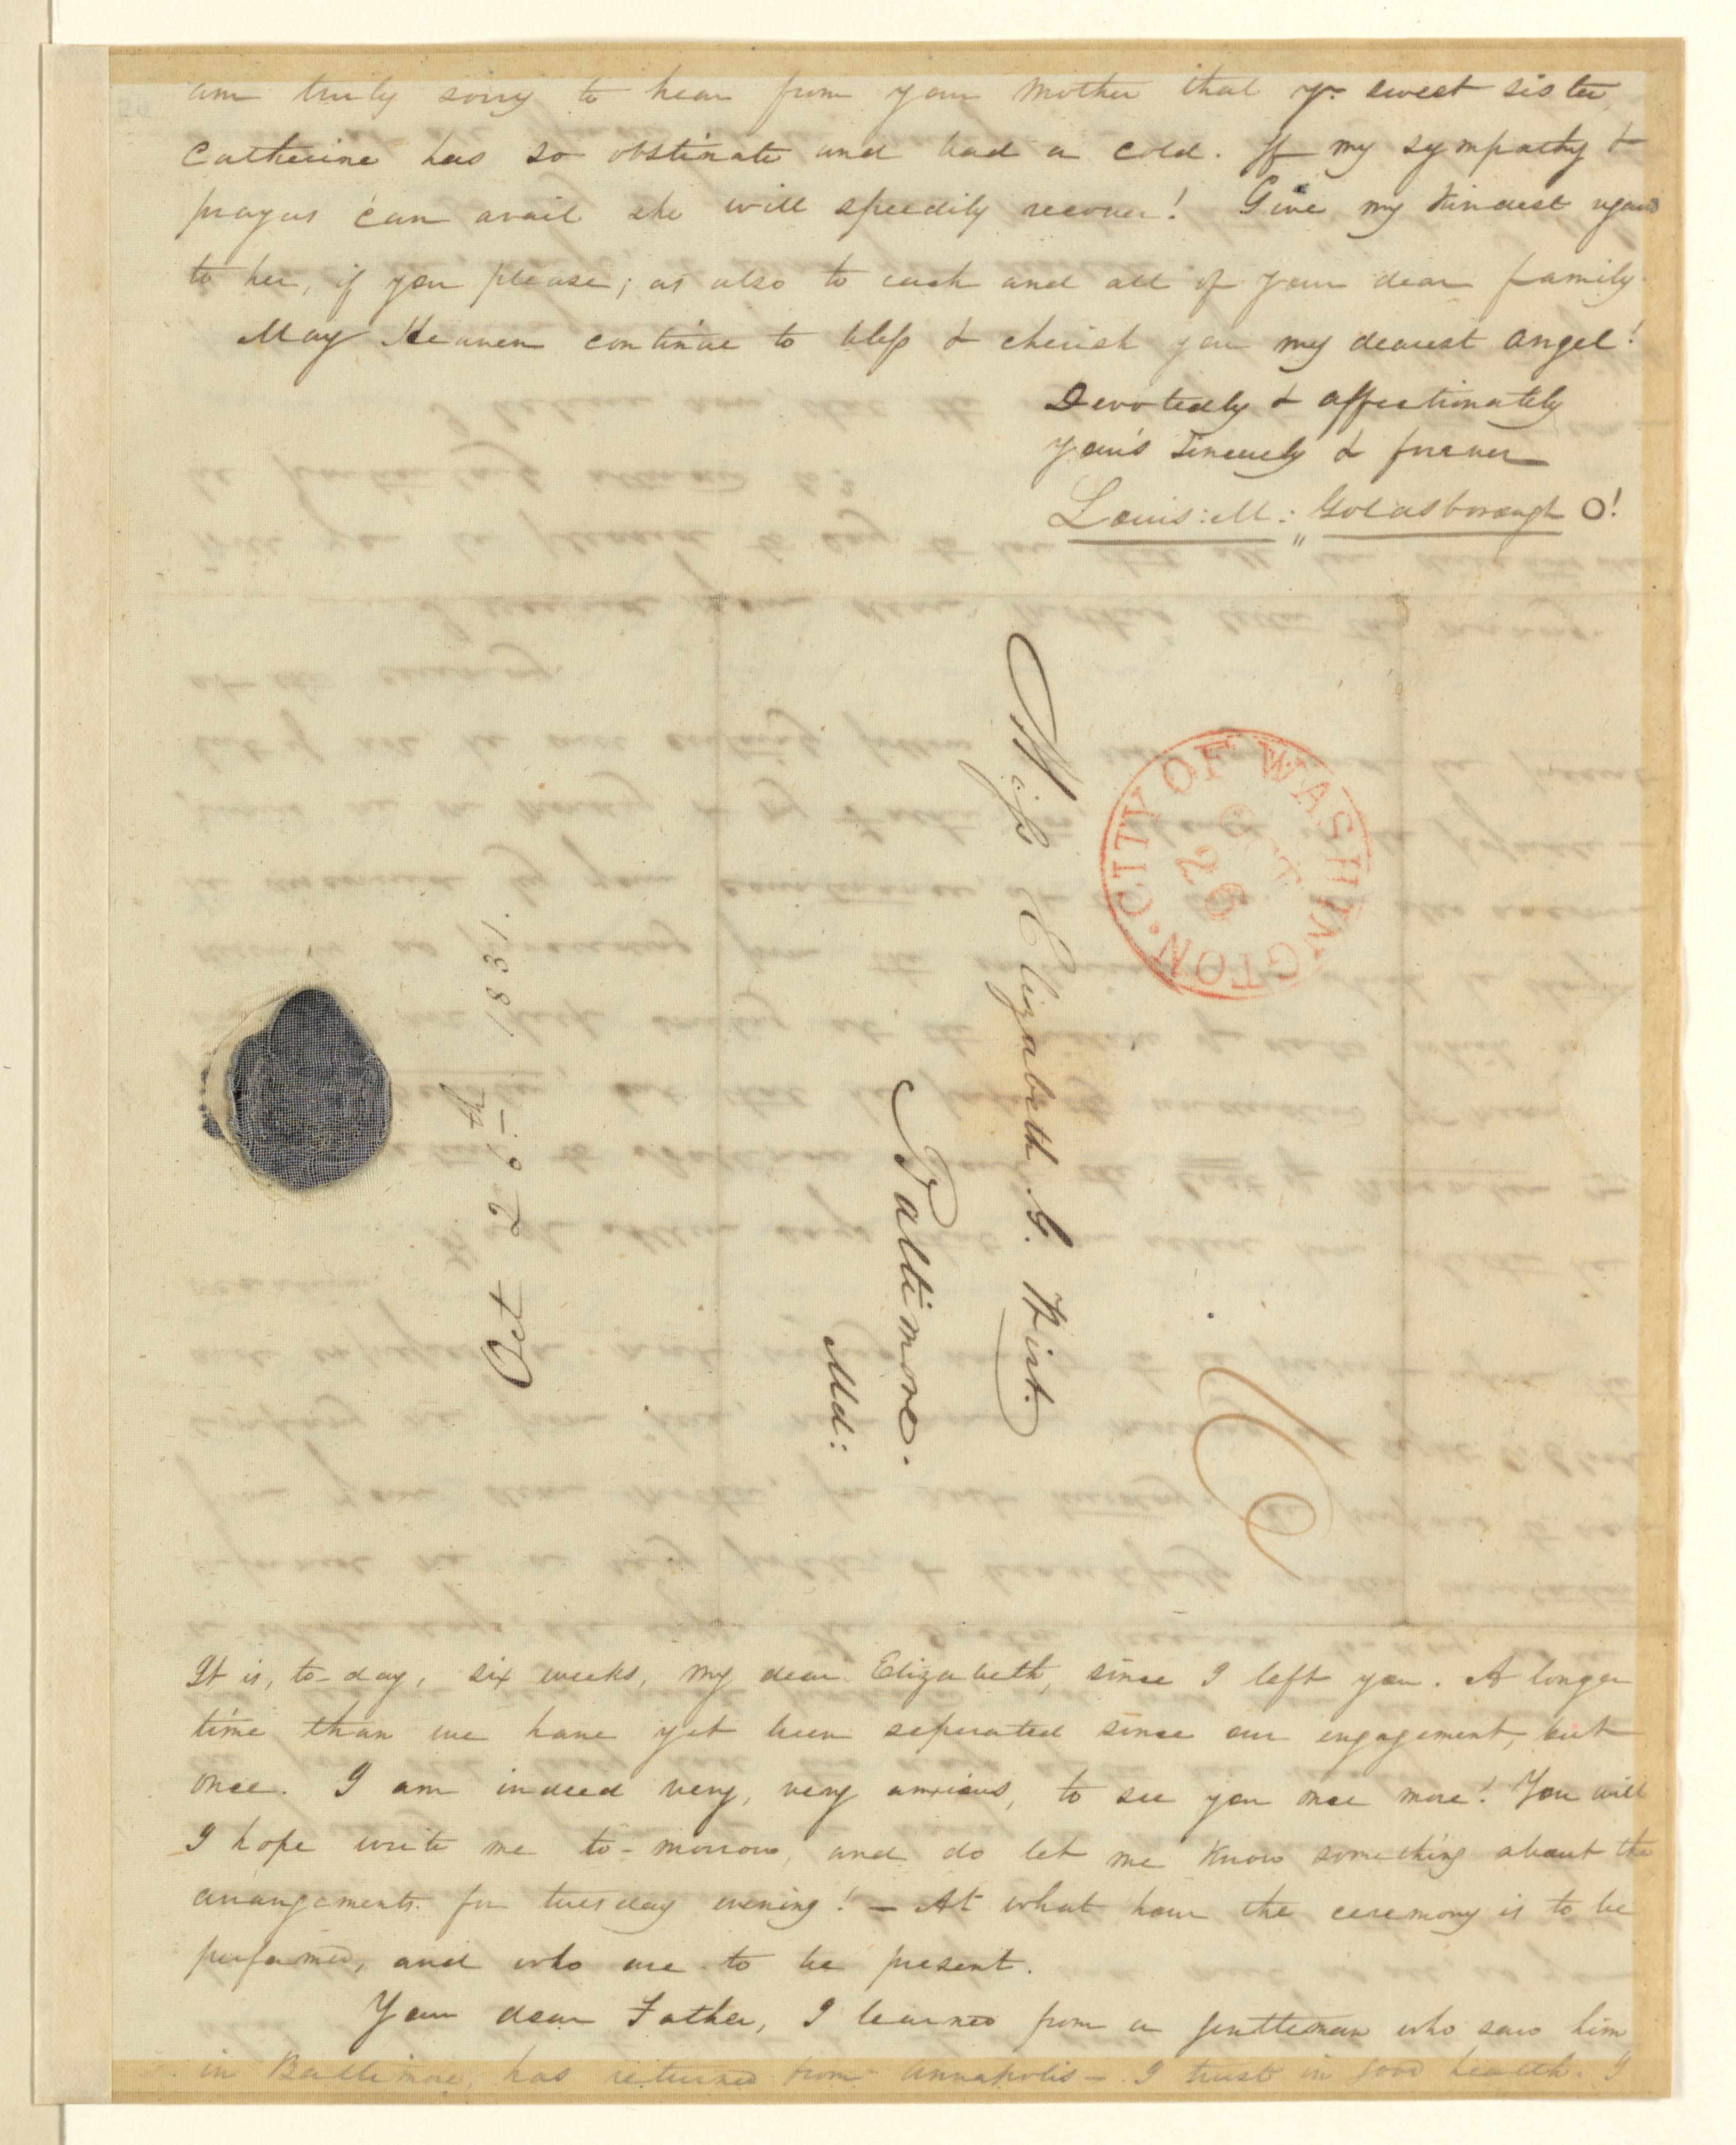 am truly sorry to hear from your Mother that yr. sweet sister
Catherine has so obstinate and bad a cold. If my sympathy &
prayers can avail she will speedily recover! Give my kindest regards
to her, if you please; as also to each and all of your dear family.
May Heaven continue to bless & cherish you my dearest angel!
Devotedly & affectionately
your's sincerely & forever
Louis: M: Goldsborough O!
CITY OF WASHINGTON.
OCT
26
Miss Elizabeth G. Wirt.
Baltimore.
Md:
Oct 26th 1831.
It is, to-day, six weeks, my dear Elizabeth, since I left you. A longer
time than we have yet been seperated since our engagement, but
once. I am indeed very, very anxious, to see you once more! You will
I hope write me to-morrow, and do let me know something about the
arrangements for tuesday evening! — At what hour the ceremony is to be
performed, and who are to be present.
Your dear Father, I learned from a gentleman who saw him
in Baltimore, has returned from Annapolis — I trust in good health. I